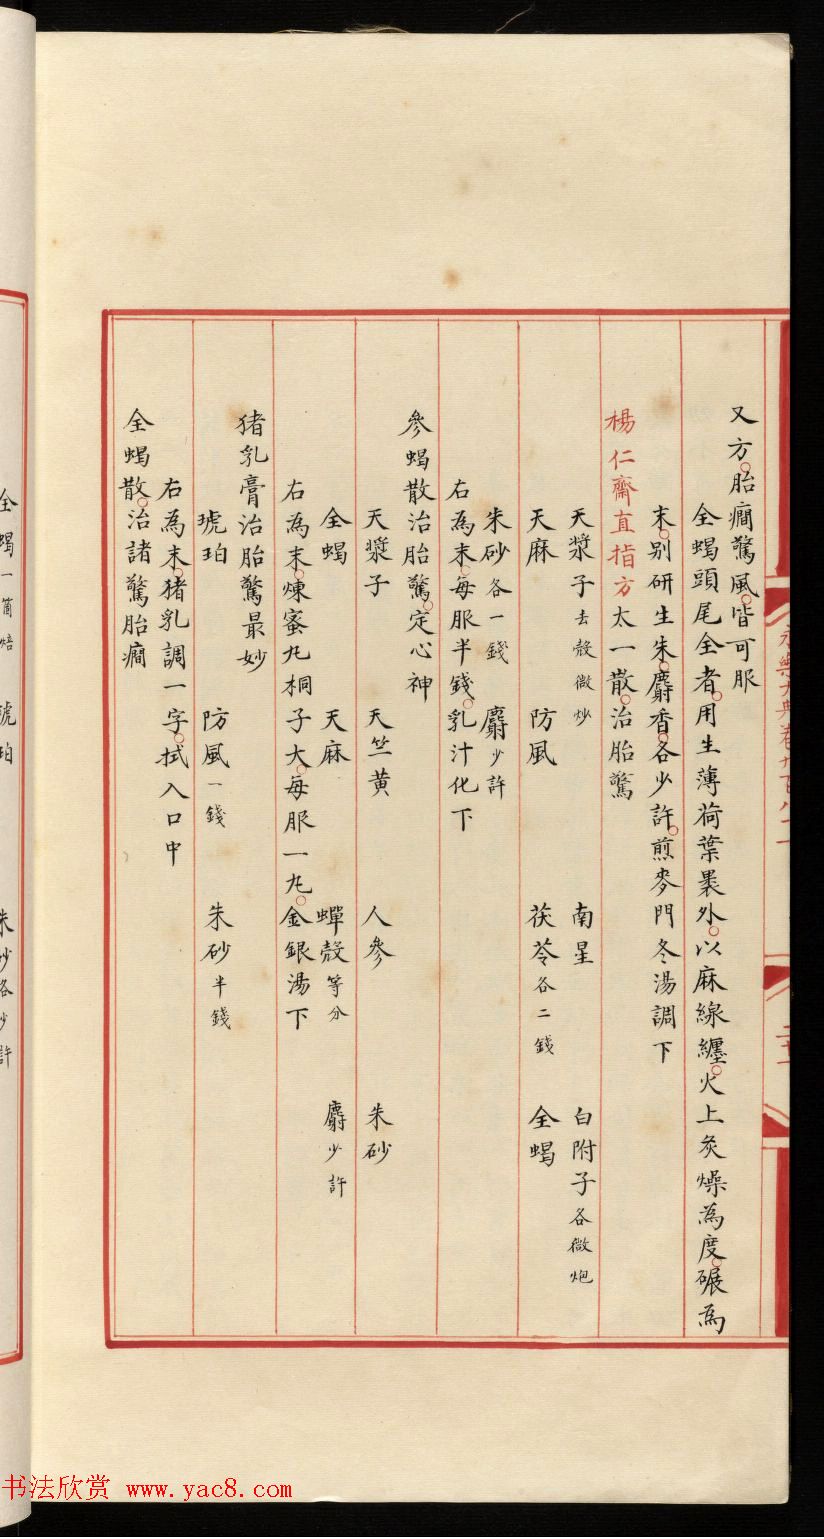 又方。胎癎驚風。皆可服
全蝎頭尾全者。用生薄荷葉裹外。以麻線纏。火上炙燥為度。碾為
末。別研生朱。麝香。各少許。煎麥門冬湯調下
楊仁齋直指方太一散。治胎驚
天漿子去殼微炒 南星 白附子各微炮
天麻 防風 茯苓各二錢 全蝎
朱砂各一錢 麝少許
右為末。每服半錢。乳汁化下
參蝎散治胎驚。定心神
天漿子 天竺黄 人參 朱砂
全蝎 天麻 蟬殼等分 麝少許
右為末。煉蜜丸桐子大。每服一丸。金銀湯下
猪乳膏治胎驚最妙
琥珀 防風一錢 朱砂半錢
右為末。猪乳調一字。拭入口中
全蝎散。治諸驚胎癎
全蝎一箇焙 琥珀 朱砂各少許
書法欣赏 www.yac8.com